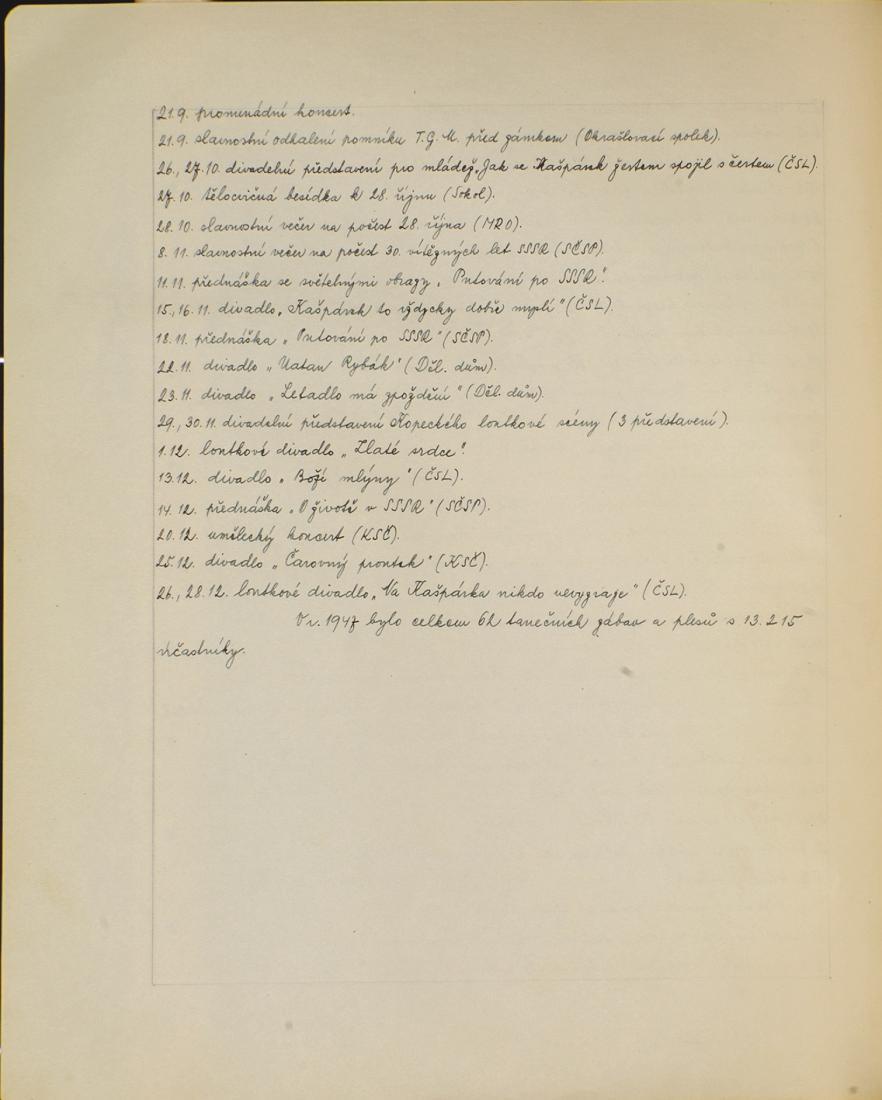 21.9. promenádní koncert.
21.9. slavnostní odhalení pomníku T.G.M. před zámkem (Okrašlovací spolek).
26., 27.10. divadelní představení pro mládež „Jak se Kašpárek žertem spojil s čertem (ČSL).
27.10. tělocvičná besídka k 28. říjnu (Sokol).
28.10. slavnostní večer na počest 28. října (MRO).
8.11. slavnostní večer na počest 30. vítězných let SSSR (SČSP).
11.11. přednáška se světelnými obrazy „Putování po SSSR".
15., 16.11. divadlo „Kašpárek to vždycky dobře myslí" (ČSL).
18.11. přednáška „Putování po SSSR" (SČSP).
22.11. divadlo „Natan Rybák" (Děl. dům).
23.11. divadlo „Letadlo má zpoždění" (Děl. dům).
29., 30.11. divadelní představení Kopeckého loutkové scény (3 představení).
1.12. loutkové divadlo „Zlaté srdce".
13.12. divadlo „Boží mlýny" (ČSL).
14.12. přednáška „O životě v SSSR" (SČSP).
20.12. umělecký koncert (KSČ).
25.12. divadlo „Čarovný proutek" (KSČ).
26., 28.12. loutkové divadlo „Na Kašpárka nikdo nevyzraje" (ČSL).
V r. 1947 bylo celkem 62 tanečních zábav a plesů s 13.215
účastníky.